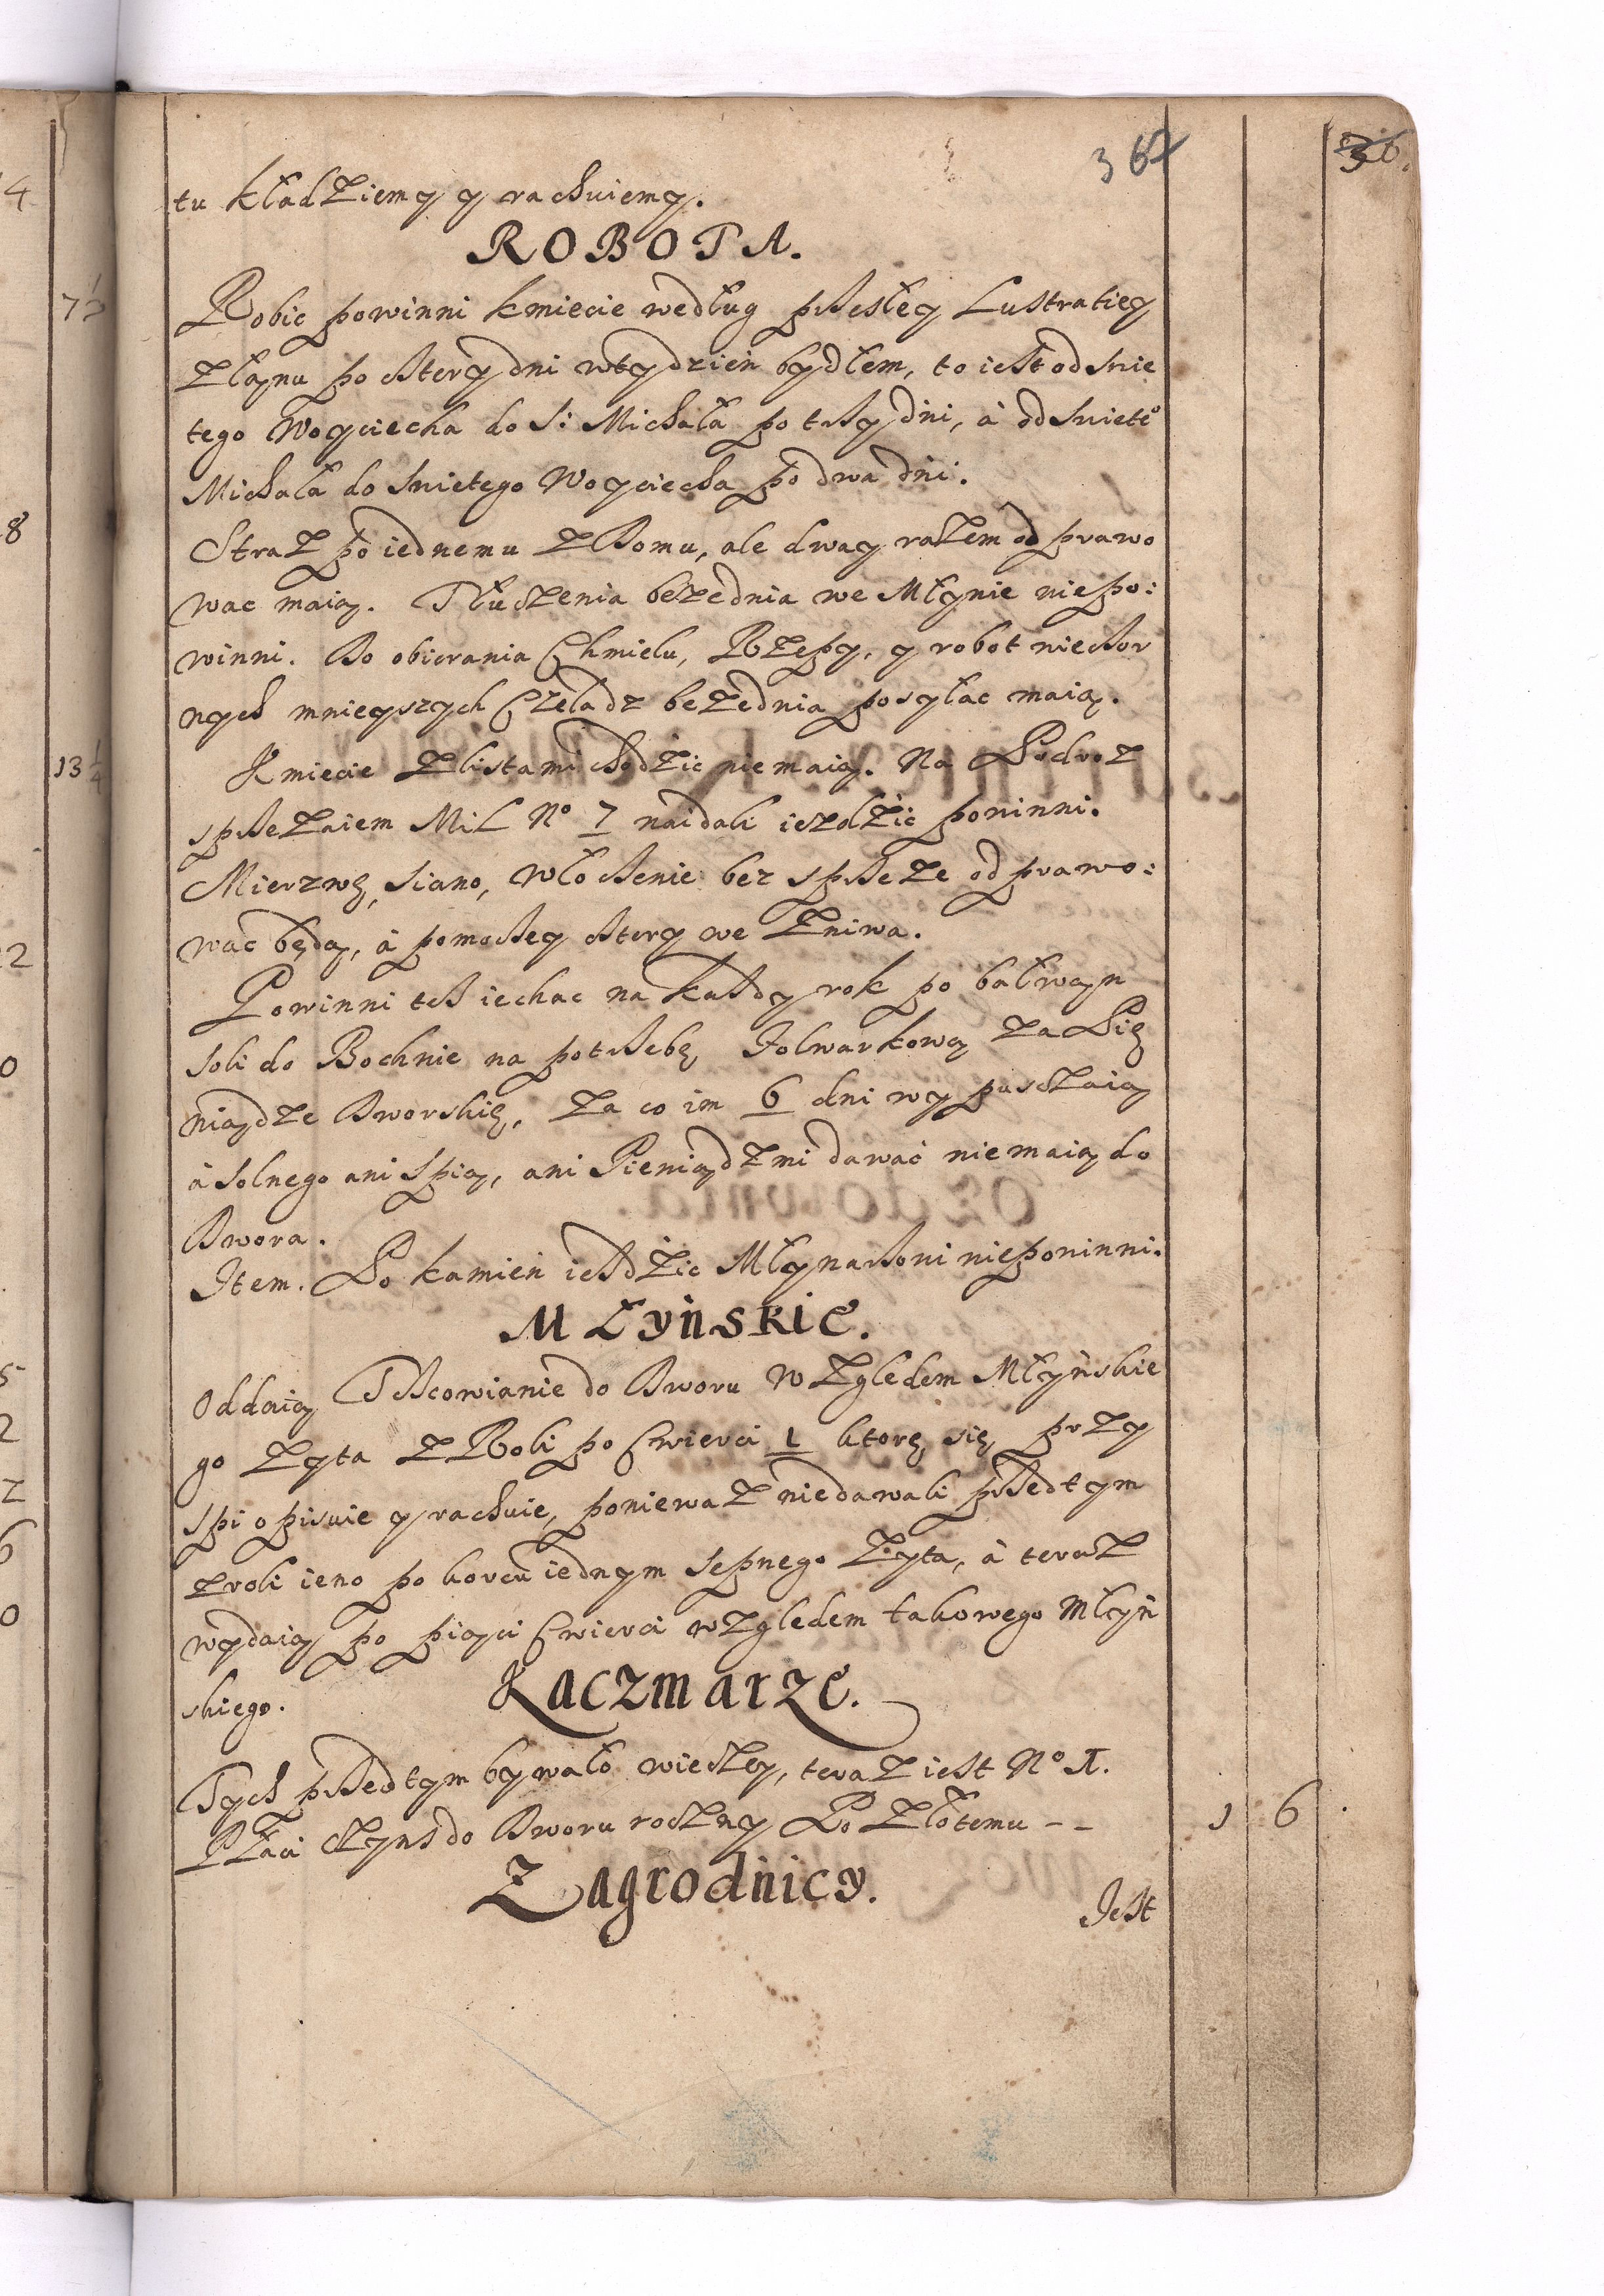 36
tu kładziemy y rachuiemy.
ROBOTA.
Robic powinni kmiecie według przesłey Lustratiey
z łanu po cztery dni w tydzień bydłem, to iest od Swie
tego Woyciecha do S: Michała po trzy dni, à od Swieteº
Michała do Swietego Woyciecha po dwa dni.
Straz po iednemu z Domu, ale dway razem odprawo
wac maią. Tłuczenia bezednia we Młynie niepo:
winni. Do obierania Chmielu, Rzepy, y robot niektor
nych mnieyszych Czeladz bezednia posyłac maią.
Kmiecie z listami chodzic nie maią. Na Podroz
sprzezaiem Mil Nº 7 naidali iezdzic powinni.
Mierzwę, siano, włoczenie bez sprzeze odprawo:
wac będą, à pomoczey cztery we zniwa.
Powinni tesz iechac na kazdy rok po bałwan
soli do Bochnie na potrzebę Folwarkową za Pię
niądze Dworskię, za co im 6 dni wypusczaią
à solnego ani Spią, ani Pieniądzmi dawać nie maią do
Dwora.
Item. Po kamień iezdzic Młynarzowi niepowinni.
MŁyńskie.
Oddaią Tczcowianie do Dworu wzgledem Młyńskie
go zyta z Roli po Cwierci 1 ktorę się przy
spi opisuie y rachuie, poniewaz niedawali przedtym
z roli ieno po korcu iednym sepnego zyta, à teraz
wydaią po piąci Cwierci wzgledem takowego Młyń
skiego.
Kaczmarze.
Tych przedtym bywało wieczey, teraz iest Nº 1.
Płaci czyns do Dworu roczny Po złotemu -- 1 6
Zagrodnicy.
Jest